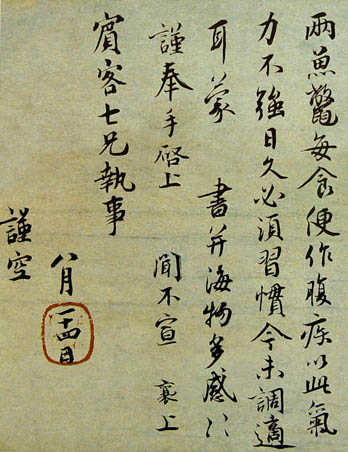 兩魚鱉每食便作腹疾以此氣
力不強日久必須習慣今未調適
耳蒙 書并海物多感〻
謹奉手啓上 聞不宣 襄上
賓客七兄執事
八月廿四日
謹空